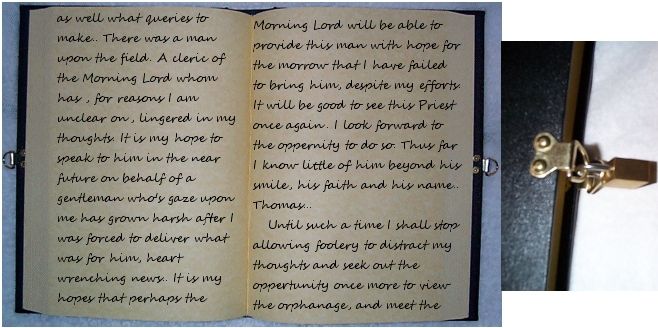 as well what queries to
make.. There was a man
upon the field. A cleric of
the Morning Lord whom
has , for reasons I am
unclear on , lingered in my
thoughts. It is my hope to
speak to him in the near
future on behalf of a
gentleman who's gaze upon
me has grown harsh after I
was forced to deliver what
was for him, heart
wrenching news.. It is my
hopes that perhaps the
Morning Lord will be able to
provide this man with hope for
the morrow that I have failed
to bring him, despite my efforts.
It will be good to see this Priest
once again. I look forward to
the oppernity to do so. Thus far
I know little of him beyond his
smile, his faith and his name..
Thomas...
Until such a time I shall stop
allowing foolery to distract my
thoughts and seek out the
oppertunity once more to view
the orphanage, and meet the